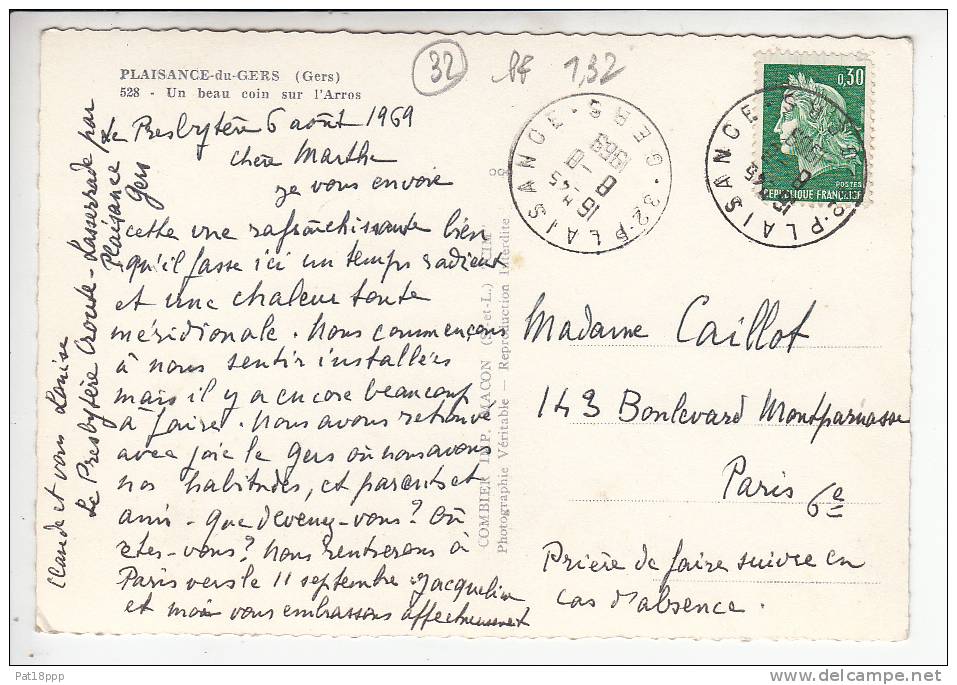 PLAISANCE-du-GERS (Gers)
528 - Un beau coin sur l'Arros
32
1,32
Le Presbytère 6 août 1969
Chère Marthe
je vous envoie
cette vue rafraîchissante bien
qu'il fasse ici un temps radieux
et une chaleur toute
méridionale. Nous commençons
à nous sentir installées
mais il y a encore beaucoup
à faire. Nous avons retrouvé
avec joie le Gers où nous avons
nos habitudes, et parents et
amis - Que devenez-vous? Où
êtes-vous? Nous rentrerons à
Paris vers le 11 septembre. Jacqueline
et moi vous embrassons affectueusement
Claude et vous Louise
Le Presbytère Croute-Lasserrade par
Plaisance
Gers
COMBIER IMP. MACON (S.-et-L.) "CIM"
Photographie Véritable — Reproduction Interdite
PLAISANCE . GERS . 32
16 H 45
8 - 8
1969
0,30
POSTES
REPUBLIQUE FRANÇAISE
PLAISANCE
Madame Caillot
143 Boulevard Montparnasse
Paris 6e
Prière de faire suivre en
cas d'absence.
Pat18ppp
delcampe.net